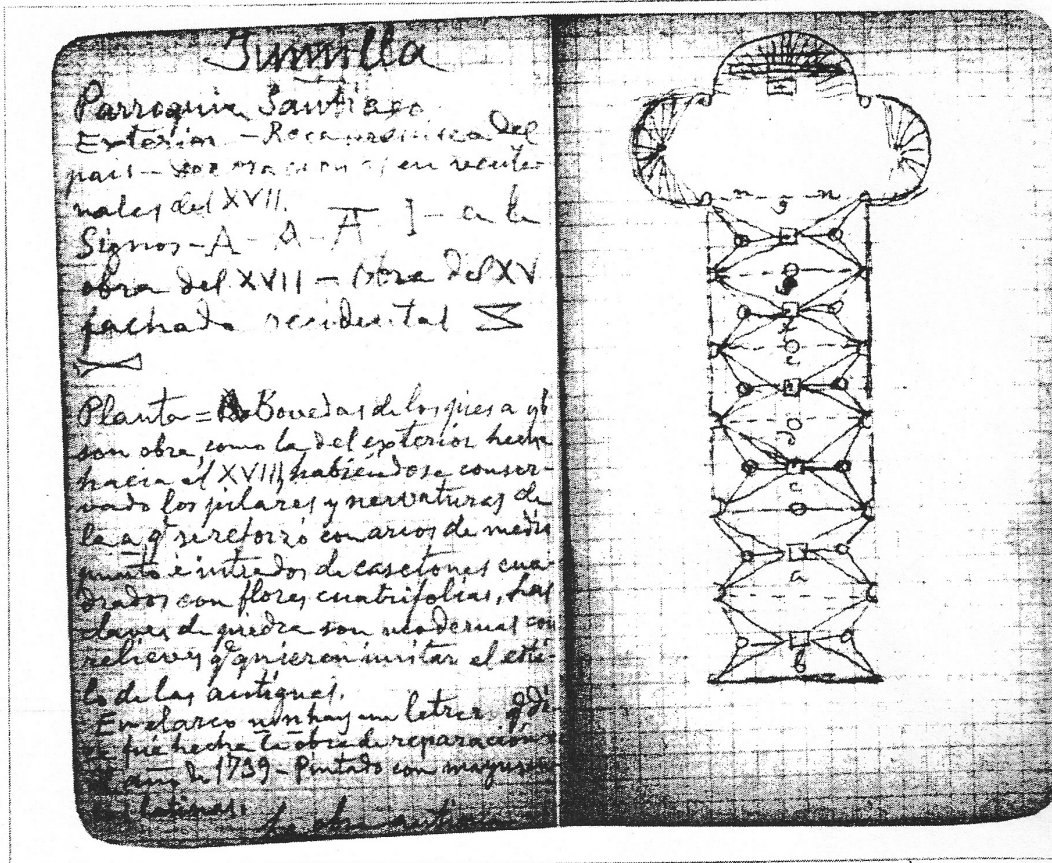 Jumilla
Parroquia Santiago
Exterior - Roca arenisca del
país - en venta-
nales del XVII.
Signos - A - A - A I - en la
obra del XVII - Obra del XV
fachada occidental Σ
Planta = Bovedas de los pies a y b
son obra, como la del exterior hecha
hacia el XVIII, habiéndose conser-
vado los pilares y nervaturas de
la a qe se reforzó con arcos de medio
punto é intrados de casetones cua-
drados con flores cuatrifolias, las
claves de piedra son modernas con
relieves qe quieren imitar el esti-
lo de las antiguas.
En el arco n n hay un letrero
fue hecha la obra de reparación
el año de 1739 - Pintado con mayuscu
latinas.
La obra antigua
n g n
c
d
c
a
b